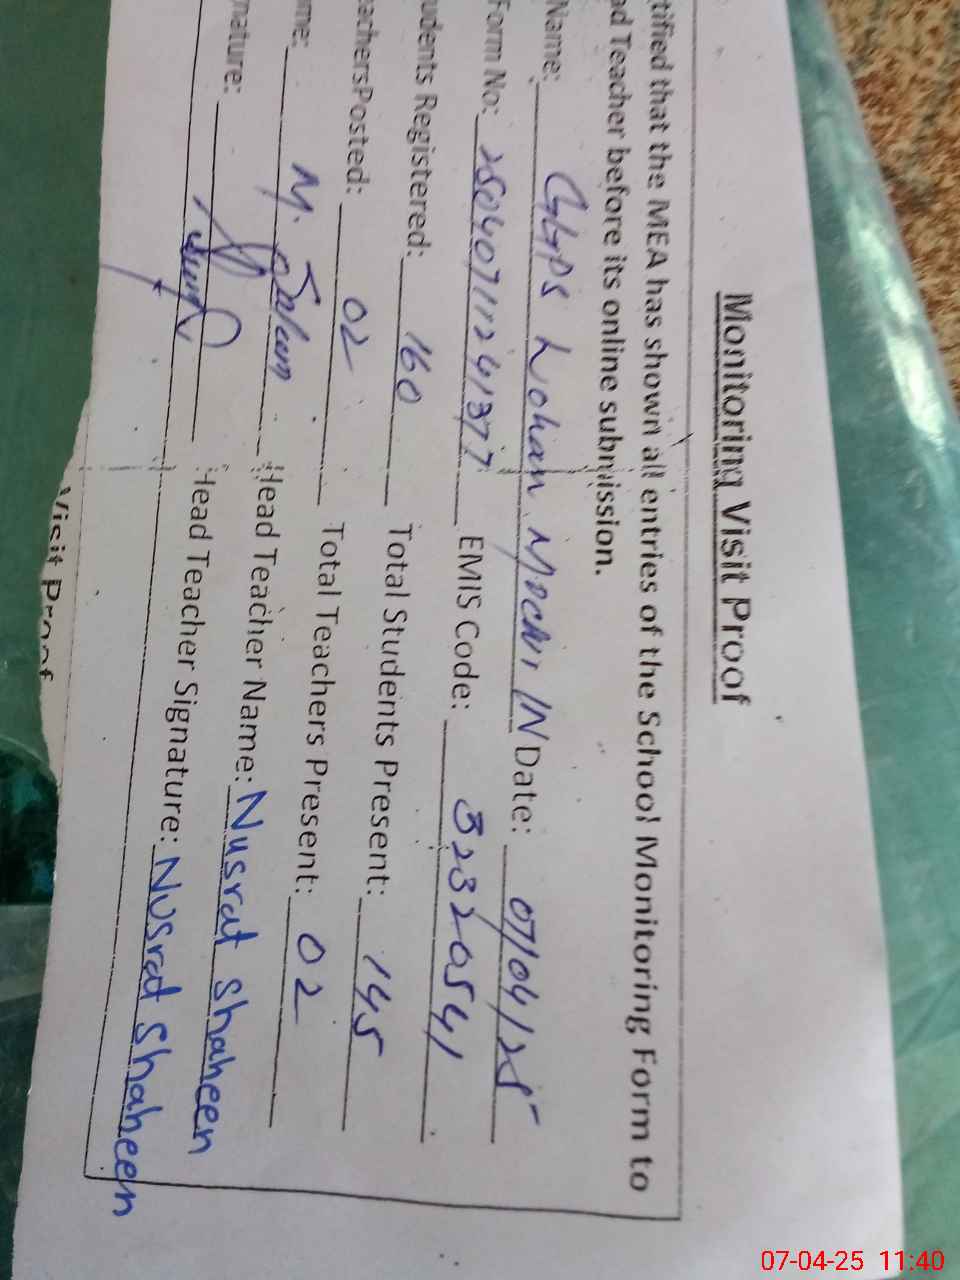 Monitoring Visit Proof
tified that the MEA has shown all entries of the School Monitoring Form to
ad Teacher before its online submission.
Name: GGPS Lohan Mochi IN Date: 07/04/25
Form No: 25040711241377 EMIS Code: 32320541
udents Registered: 160 Total Students Present: 145
eachersPosted: 02 Total Teachers Present: 02
me: M. Salam Head Teacher Name: Nusrat Shaheen
nature: Head Teacher Signature: Nusrat Shaheen
Visit Proof
07-04-25 11:40